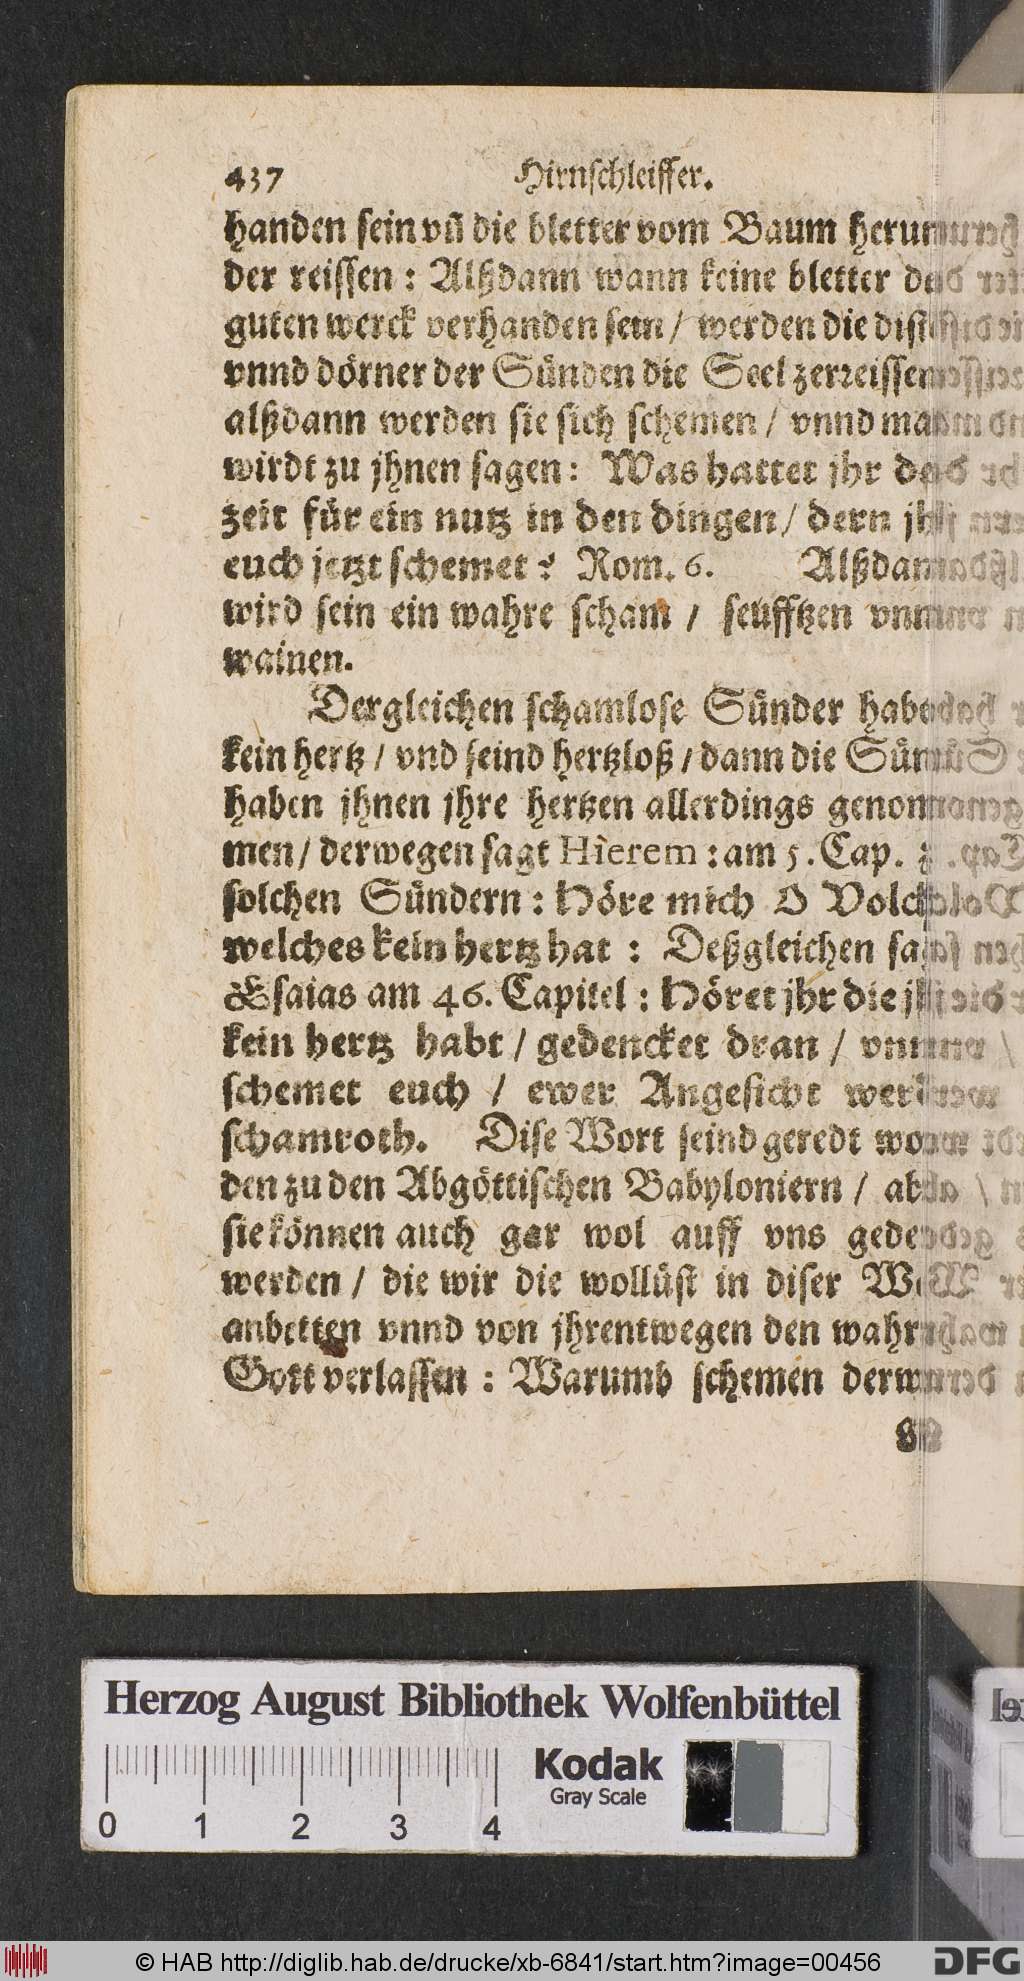 437 Hirnschleiffer.
handen sein vñ die bletter vom Baum herun
der reissen: Alßdann wann keine bletter der
guten werck verhanden sein / werden die distel
vnnd dörner der Sünden die Seel zerreissen
alßdann werden sie sich schemen / vnnd man
wirdt zu jhnen sagen: Was hattet jhr der
zeit für ein nutz in den dingen / dern jhr
euch jetzt schemet? Rom. 6. Alßdann
wird sein ein wahre scham / seufftzen vnnd
wainen.
Dergleichen schamlose Sünder haben
kein hertz / vnd seind hertzloß / dann die Sünd
haben jhnen jhre hertzen allerdings genom
men / derwegen sagt Hierem: am 5. Cap. z
solchen Sündern: Höre mich O Volck
welches kein hertz hat: Deßgleichen sagt
Esaias am 46. Capitel: Höret jhr die jhr
kein hertz habt / gedencket dran / vnnd
schemet euch / ewer Angesicht werd
schamroth. Dise Wort seind geredt wor
den zu den Abgöttischen Babyloniern / aber
sie können auch gar wol auff vns gede
werden / die wir die wollüst in diser Welt
anbetten vnnd von jhrentwegen den wahren
Gott verlassen: Warumb schemen derw
Herzog August Bibliothek Wolfenbüttel
Kodak
Gray Scale
0 1 2 3 4
© HAB http://diglib.hab.de/drucke/xb-6841/start.htm?image=00456
DFG